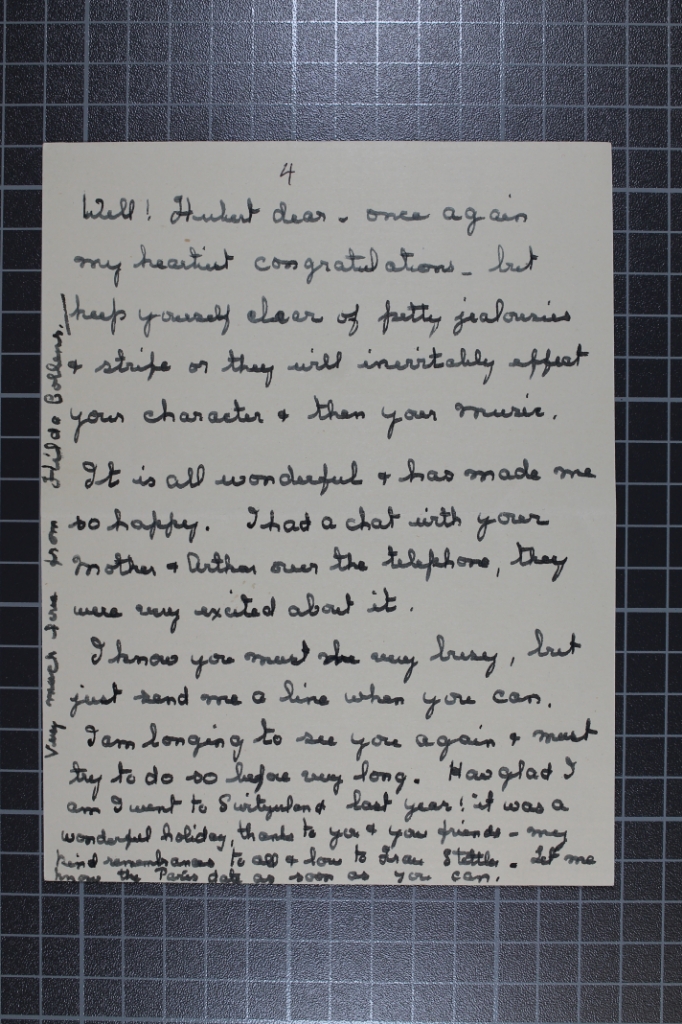 4
Well! Hubert dear - once again
my heartiest congratulations - but
keep yourself clear of petty jealousies
& strife or they will inevitably effect
your character & then your music.
It is all wonderful & has made me
so happy. I had a chat with your
Mother & Arthur over the telephone, they
were very excited about it.
I know you must be very busy, but
just send me a line when you can.
I am longing to see you again & must
try to do so before very long. How glad I
am I went to Switzerland last year! it was a
wonderful holiday, thanks to you & your friends - my
kind remembrances to all & love to Frau Stettler. Let me
know the Paris date as soon as you can.
Very much love from Hilda Bollens.